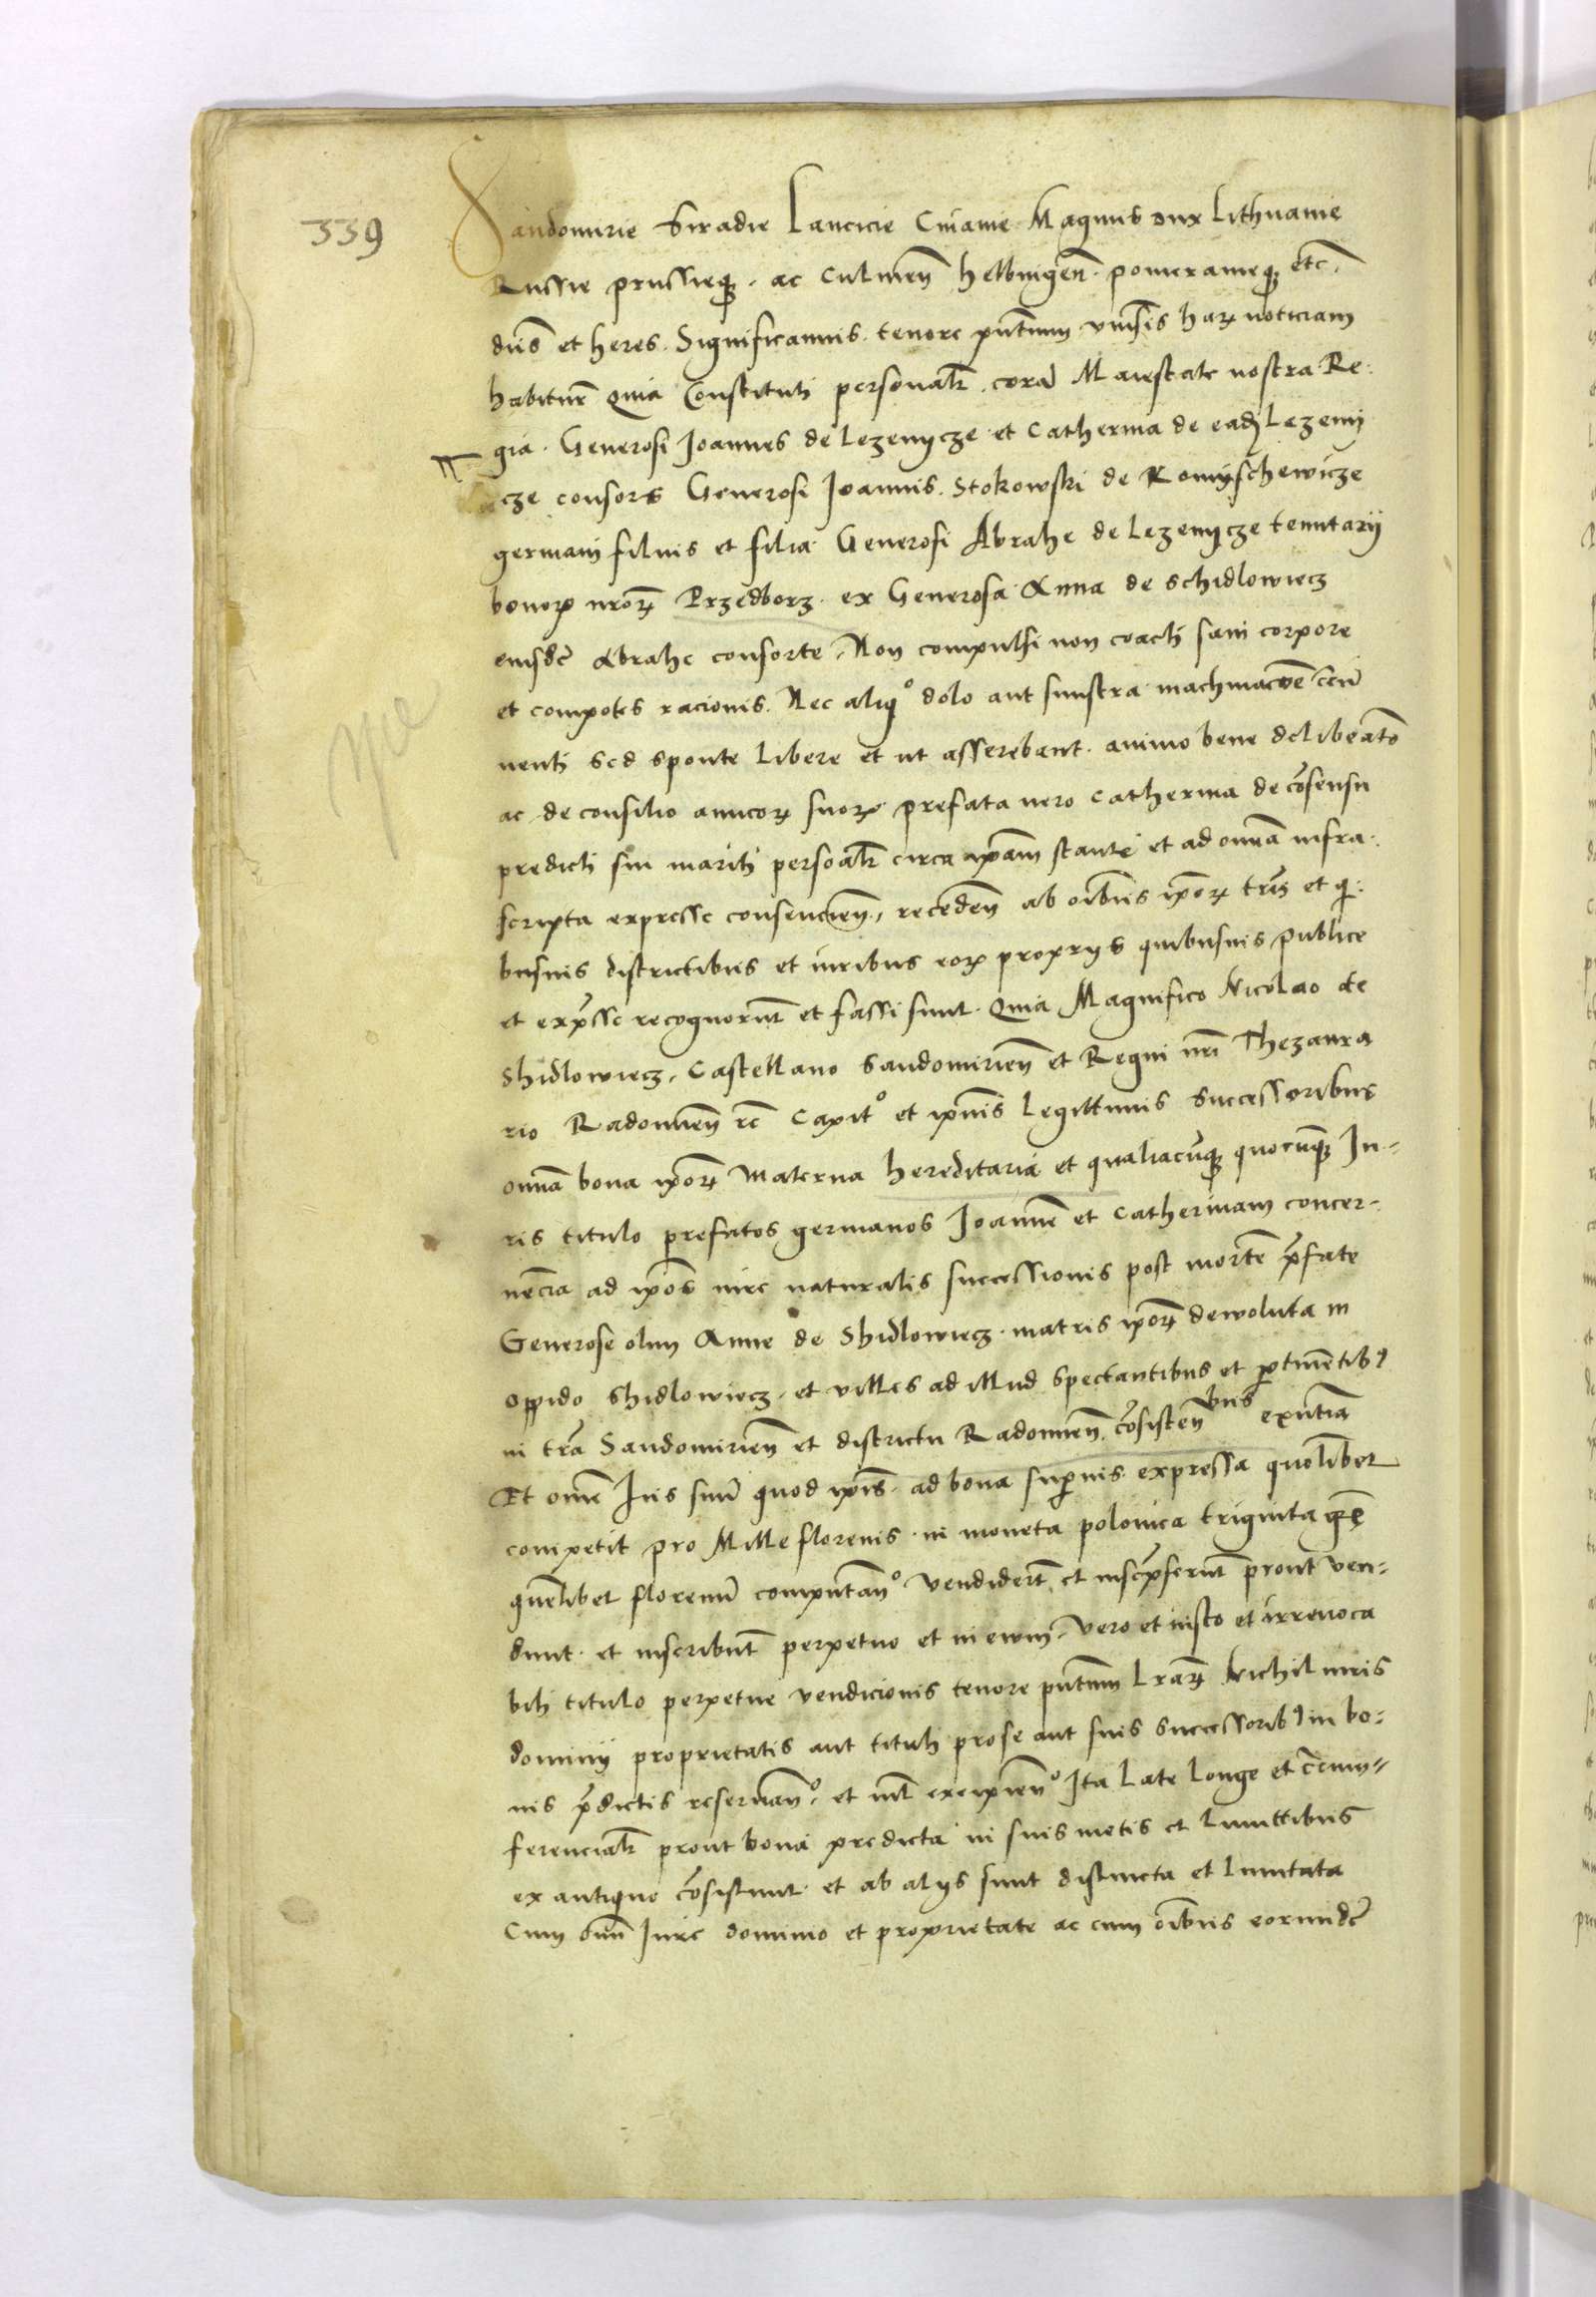 339
Sandomirie Siradie Lancicie Cuiauie Magnus dux Lithuanie
Russie prussieq̃ . ac Culmeñ helbingeñ . pomeranieq̃ etc̃ .
dñs et heres . Significamus . tenore pñtium vniũsis harꝝ noticiam
habiturꝭ Quia Constituti personalr̃ . corã Maiestate nostra Re :
gia . Generosi Joannes de Lezenycze et Catherina de eadꝫ Lezeny
cze consors Generosi Joannis . Stokowski de Romyschewicze
germani filius et filia Generosi Abrahe de Lezenycze tenutarij
bonoꝝ nr̃orꝝ Przedborz . ex Generosa Anna de schidlowiecz
eiusdẽ Abrahe consorte . Non compulsi non coacti sani corpore
et compotes racionis . Nec aliqͦ dolo aut sinistra machinacõe ccũ
uenti Sed sponte libere et ut asserebant . animo bene deliberatõ
ac de consilio amicorꝝ suoꝝ prefata uero Catherina de cõsensu
predicti sui mariti persoãlr circa ip̃am stante et ad om̃ia infra .
scripta expresse consencieñ , recedeñ ab oĩbus ip̃orꝝ tris et qi :
busuis districtibus et iuribus eoꝝ proprijs quibusuis publice
et exp̃sse recognorũt et fassi sunt . Quia Magnifico Nicolao de
Shidlowiecz . Castellano Sandomirieñ et Regni nr̃i Thezaura
rio Radomieñ rc̃ Capitͦ et ip̃ius legittimis successoribus
om̃ia bona ip̃orꝝ materna hereditaria et qualiacũq̃ quocũq̃ Iu-
ris titulo prefatos germanos Joannẽ et Catherinam concer-
nẽcia ad ip̃os iure naturalis successionis post mortẽ p̃fate
Generose olim Anne de Shidlowiecz . matris ip̃orꝝ dewoluta in
oppido Shidlowiecz . et villis ad illud spectantibus et p̱tinẽtibꝰ
in tr̃a Sandomirieñ et districtu Radomieñ . cõsisteñ bus exñtia
Et om̃e Ius suũ quod ip̃is . ad bona sup̱ius expressa quolibet
competit pro Mille florenis . in moneta polonica triginta gr̃
quẽlibet florenũ computañͦ vendidert̃ et inscp̃serũt prout ven-
dunt . et inscribũt perpetuo et in ewũ . vero et iusto et irreuoca
bili titulo perpetue vendicionis tenore pñtium lr̃arꝝ Nichil iuris
dominij proprietatis aut tituli pro se aut suis successoribꝰ in bo-
nis p̃dictis reseruañͦ . et nil excipieñͦ Ita late longe et ccum-
ferencialr̃ prout bona predicta in suis metis et limittibus
ex antiquo cõsistunt et ab alijs sunt distincta et limitata
Cum om̃i Iure dominio et proprietate ac cum oĩbus eorundẽ